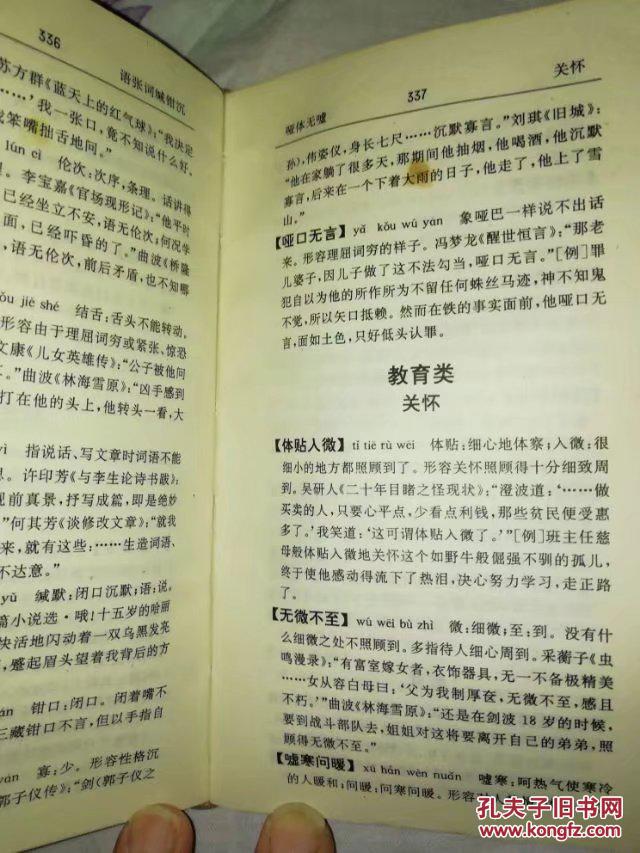 336
语张词缄钳沉
苏方群《蓝天上的红气球》:“我决定
……’我一张口,竟不知说什么好,
笨嘴拙舌地问。”
lún cì 伦次:次序,条理。话讲得
李宝嘉《官场现形记》:“他平时
已经坐立不安,语无伦次;何况学
面,已经吓昏了。”曲波《桥隆
,语无伦次,前后矛盾,也不知哪
ǒu jié shé 结舌:舌头不能转动。
形容由于理屈词穷或紧张、惊恐
文康《儿女英雄传》:“公子被他问
。”曲波《林海雪原》:“凶手感到
打在他的头上,他转头一看,大
yì 指说话、写文章时词语不能
思。许印芳《与李生论诗书跋》:
现前真景,抒写成篇,即是绝妙
”何其芳《谈修改文章》:“就我
来,就有这些:……生造词语、
不达意。”
yǔ 缄默:闭口沉默;语:说。
篇小说选·哦!十五岁的哈丽
快活地闪动着一双乌黑发亮
,蹙起眉头望着我背后的方
án 钳口:闭口。闭着嘴不
三藏钳口不言,但以手指自
yán 寡:少。形容性格沉
郭子仪传》:“剑(郭子仪之
哑体无嘘
337
关怀
孙),伟姿仪,身长七尺……沉默寡言。”刘琪《旧城》:
“他在家躺了很多天,那期间他抽烟,他喝酒,他沉默
寡言,后来在一个下着大雨的日子,他走了,他上了雪
山。”
【哑口无言】yǎ kǒu wú yán 象哑巴一样说不出话
来。形容理屈词穷的样子。冯梦龙《醒世恒言》:“那老
儿婆子,因儿子做了这不法勾当,哑口无言。”[例]罪
犯自以为他的所作所为不留任何蛛丝马迹,神不知鬼
不觉,所以矢口抵赖。然而在铁的事实面前,他哑口无
言,面如土色,只好低头认罪。
教育类
关怀
【体贴入微】tǐ tiē rù wēi 体贴:细心地体察;入微:很
细小的地方都照顾到了。形容关怀照顾得十分细致周
到。吴研人《二十年目睹之怪现状》:“澄波道:‘……做
买卖的人,只要心平点,少看点利钱,那些贫民便受惠
多了。’我笑道:‘这可谓体贴入微了。’”[例]班主任慈
母般体贴入微地关怀这个如野牛般倔强不驯的孤儿,
终于使他感动得流下了热泪,决心努力学习,走正路
了。
【无微不至】wú wēi bù zhì 微:细微;至:到。没有什
么细微之处不照顾到。多指待人细心周到。采蘅子《虫
鸣漫录》:“有富室嫁女者,衣饰器具,无一不备极精美
……女从容白母曰:‘父为我制厚奁,无微不至,感且
不朽。’”曲波《林海雪原》:“还是在剑波18岁的时候,
要到战斗部队去,姐姐对这将要离开自己的弟弟,照
顾得无微不至。”
【嘘寒问暖】xū hán wèn nuǎn 嘘寒:呵热气使寒冷
的人暖和;问暖:问寒问暖。形容
孔夫子旧书网
www.kongfz.com